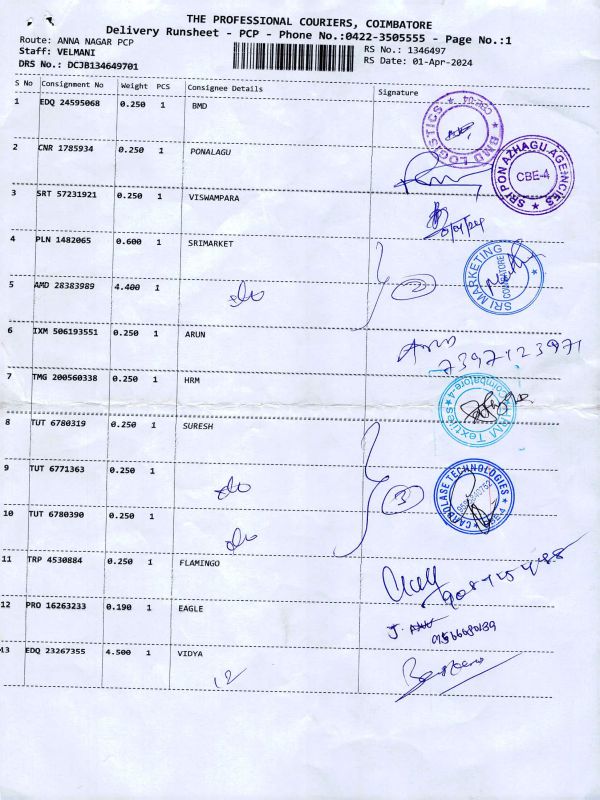 THE PROFESSIONAL COURIERS, COIMBATORE
Delivery Runsheet - PCP - Phone No.:0422-3505555 - Page No.:1
Route: ANNA NAGAR PCP
RS No.: 1346497
Staff: VELMANI
RS Date: 01-Apr-2024
DRS No.: DCJB134649701
S No Consignment No Weight PCS Consignee Details Signature
1 EDQ 24595068 0.250 1 BMD
BMD LOGISTICS
2 CNR 1785934 0.250 1 PONALAGU
SRI PON AZHAGU AGENCIES CBE-4
3 SRT 57231921 0.250 1 VISWAMPARA
4 PLN 1482065 0.600 1 SRIMARKET
SRI MARKETING COIMBATORE
5 AMD 28383989 4.400 1
2
6 IXM 506193551 0.250 1 ARUN
Arun
7397123971
7 TMG 200560338 0.250 1 HRM
Textiles Coimbatore-4
8 TUT 6780319 0.250 1 SURESH
9 TUT 6771363 0.250 1
3
CARBOLASE TECHNOLOGIES
10 TUT 6780390 0.250 1
11 TRP 4530884 0.250 1 FLAMINGO
12 PRO 16263233 0.190 1 EAGLE
13 EDQ 23267355 4.500 1 VIDYA
12